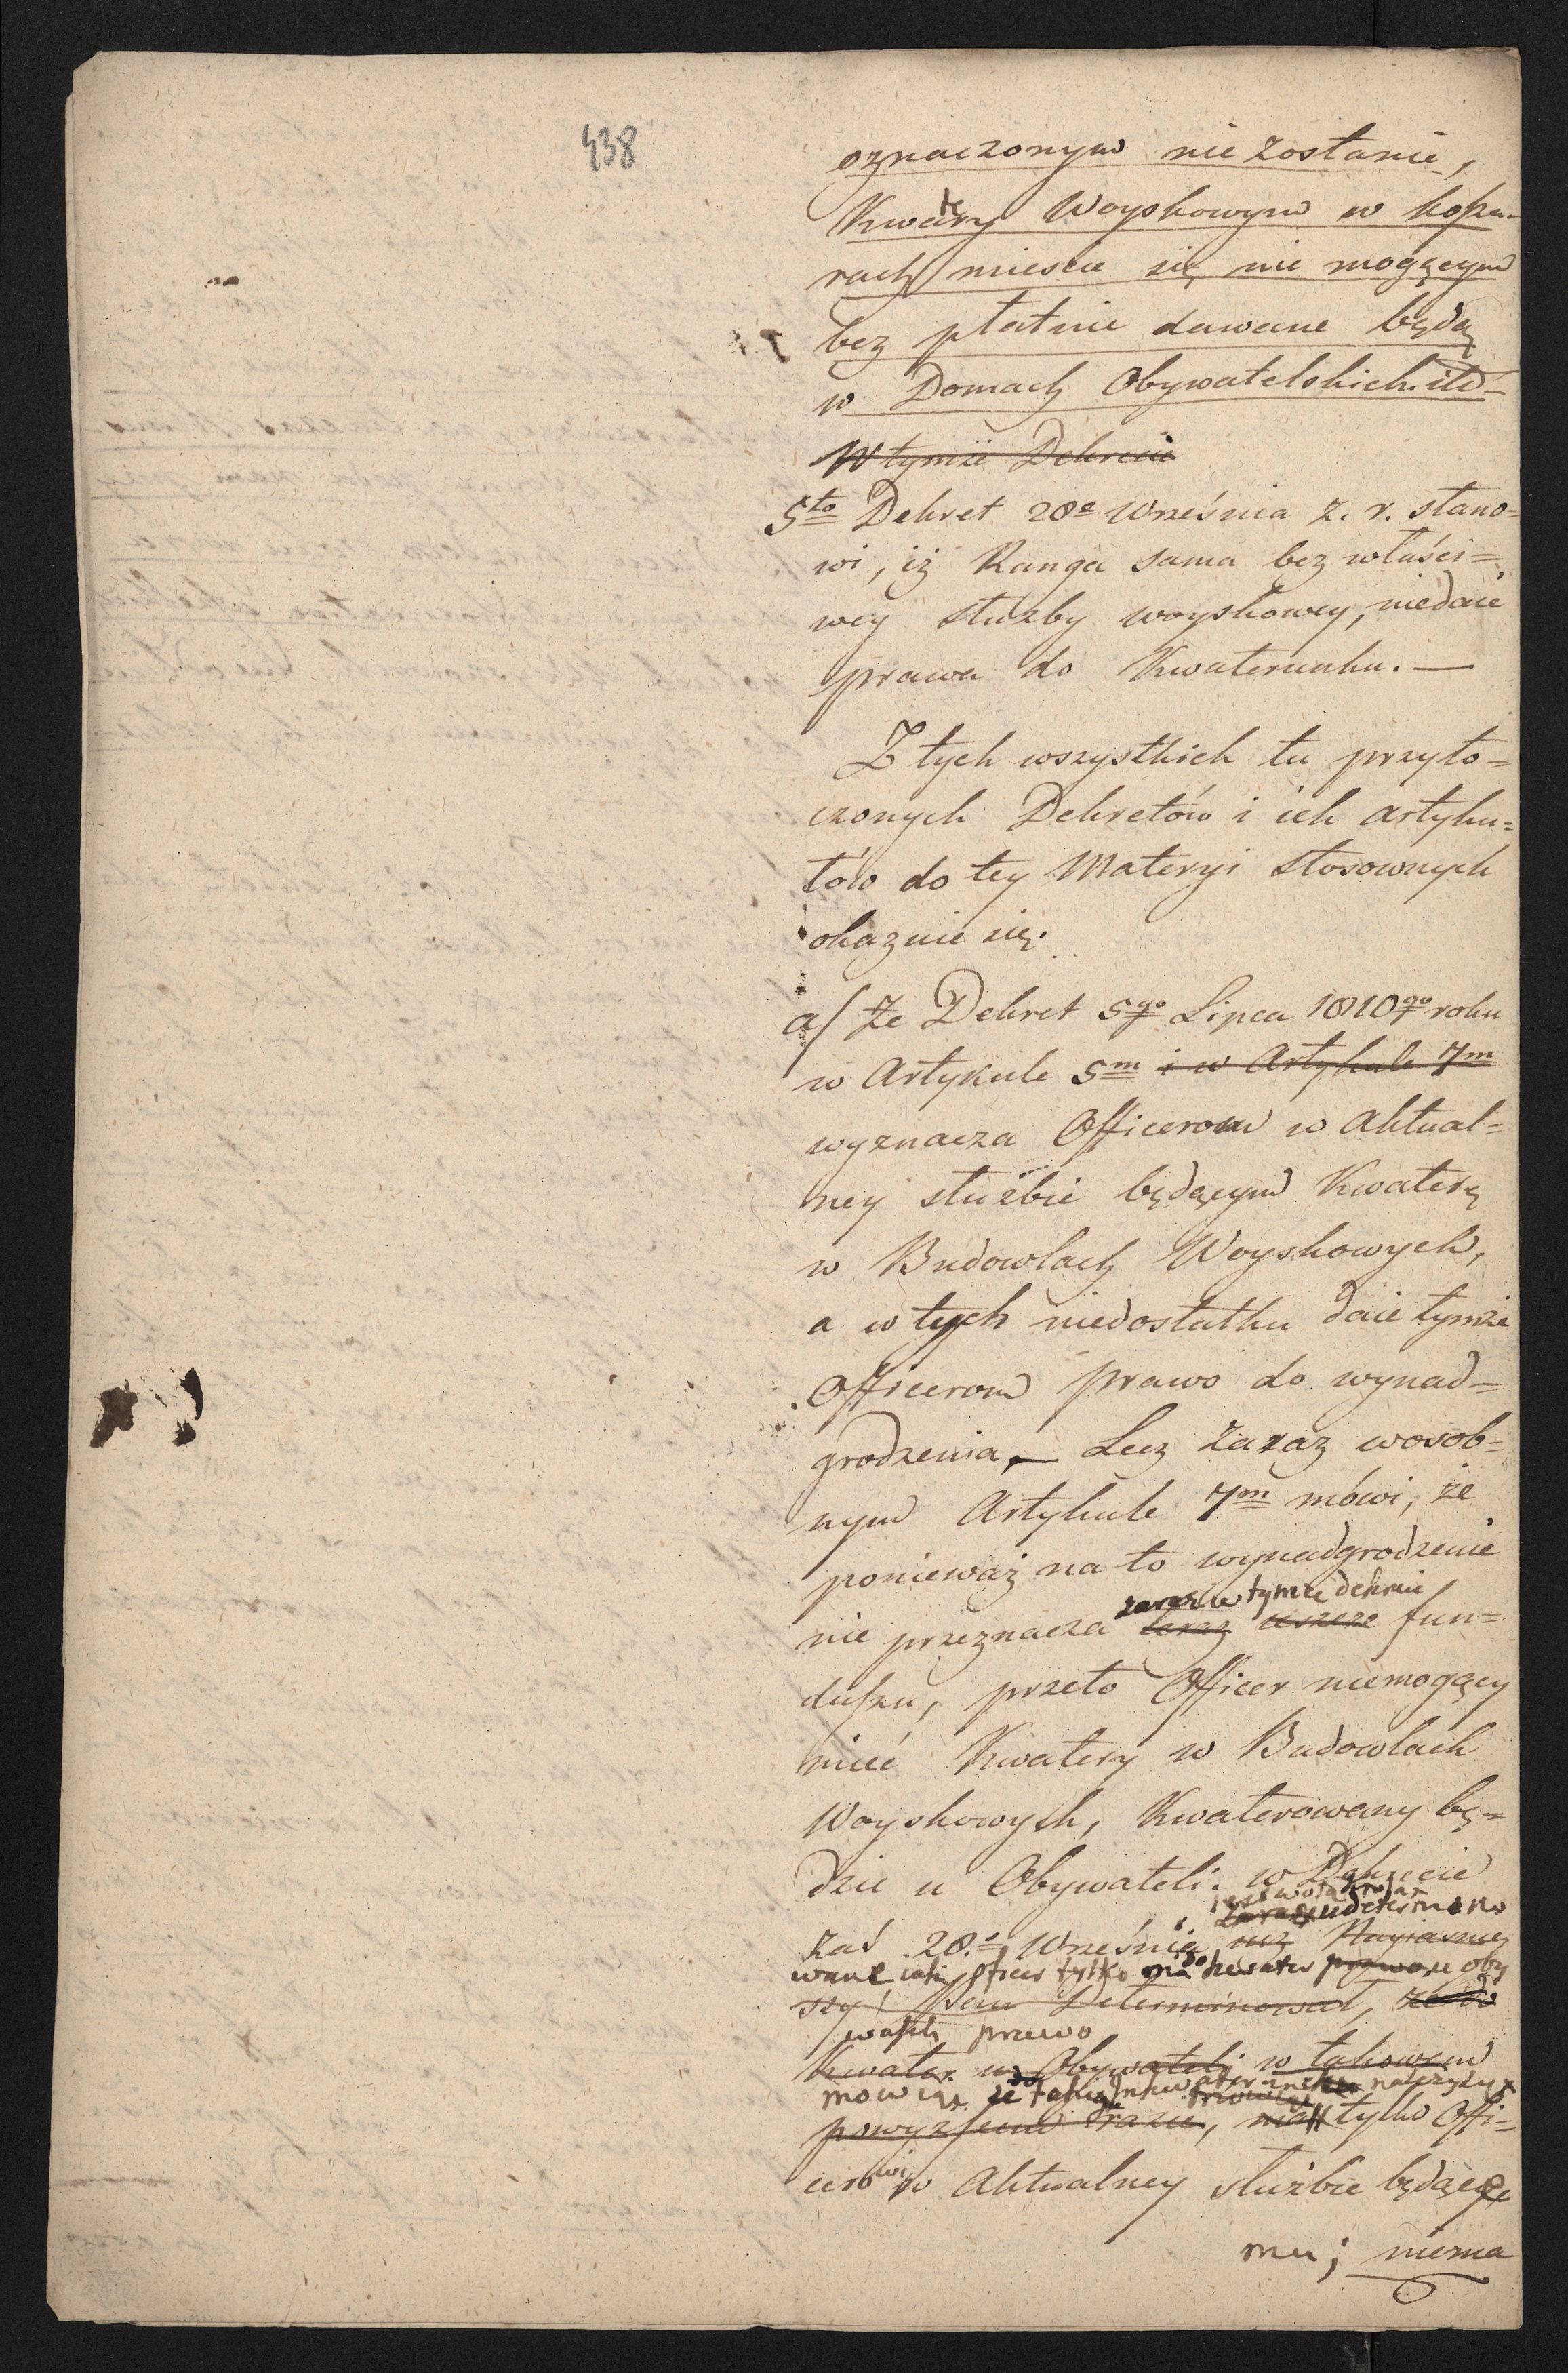 438
oznaczonym nie zostanie,
Kwatery Woyskowym w kosza-
rach mieścić się nie mogącym
bez płatnie dawane będą
w Domach Obywatelskich. itd-
W tymże Dekrecie
5to Dekret 28e Września z. r. stano=
wi, iż Ranga sama bez właści=
wey służby woyskowey, niedaie
prawa do Kwaterunku. —
Z tych wszystkich tu przyto=
czonych Dekretów i ich artyku=
łów do tey Materyi stosownych
okazuie się.
a/ Że Dekret 5go Lipca 1810go roku
w Artykule 5m i w Artykule 7m
wyznacza Officerom w Aktual=
ney służbie będącym Kwaterę
w Budowlach Woyskowych,
a w tych niedostatku daie tymże
Officerom prawo do wynad=
grodzenia, — Lecz zaraz wosob=
nym Artykule 7m mówi, że
ponieważ na to wynadgrodzenie
zaraz w tymże dekrecie
nie przeznacza teraz fun=
duszu, przeto Officer niemogący
mieć Kwatery w Budowlach
Woyskowych, Kwaterowany bę=
dzie u Obywateli. w Dekrecie
zaś 28.e Września iuż Nayiaśniey
szy Pan Determinował, że do
prawo
Kwater u Obywateli w takowem
powyższem razie, ma tylko Offi-
cerowi w Aktualney służbie będące
mu; niema